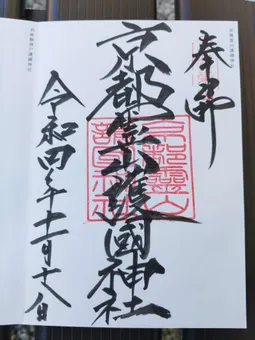 奉拝
京都霊山護國神社
令和四年十一月十八日